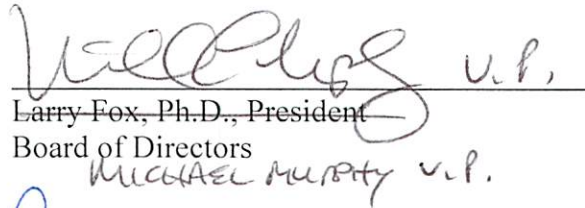 V.P.
Larry Fox, Ph.D., President
Board of Directors
MICHAEL MURPHY V.P.